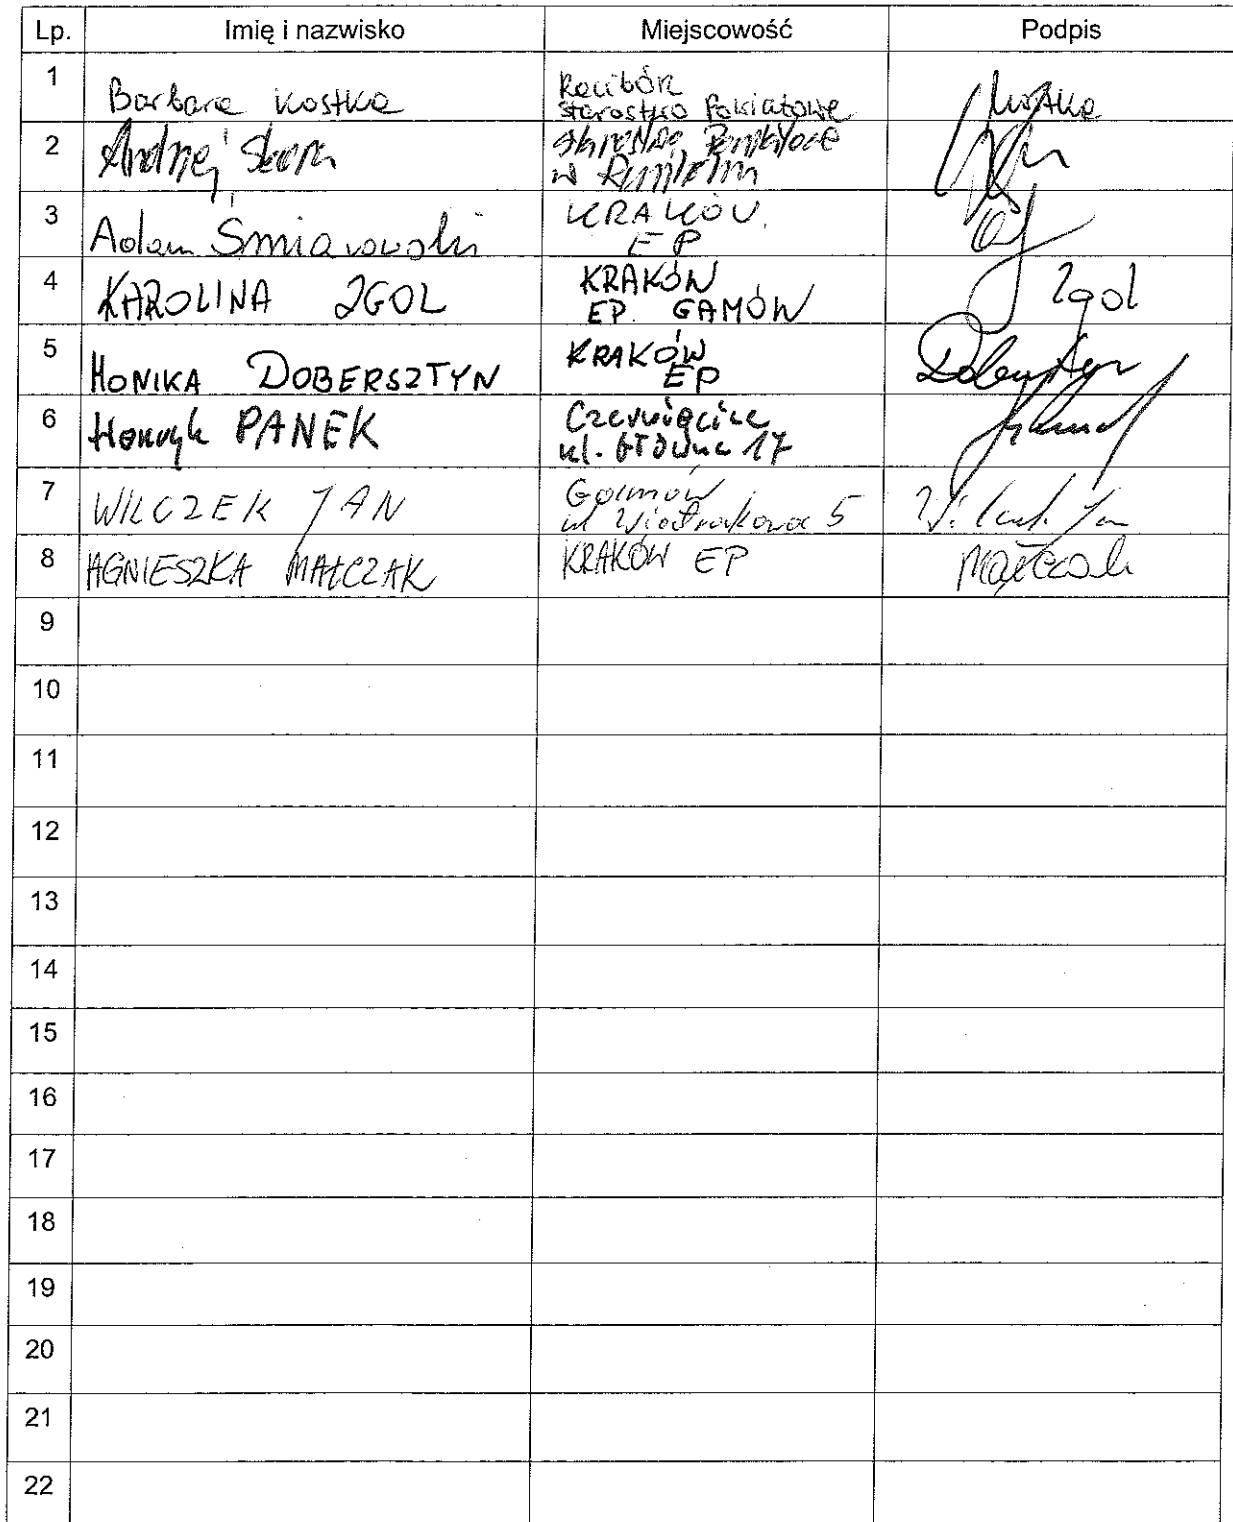 Lp. Imię i nazwisko Miejscowość Podpis
1 Barbara Kostka Racibórz
Starostwo Powiatowe Kostka
2 Andrzej Starostwo Powiatowe
w
3 Adam Śmiarowski KRAKÓW
EP
4 KAROLINA ZGOL KRAKÓW
EP. GAMÓW Zgol
5 MONIKA DOBERSZTYN KRAKÓW
EP Dobersztyn
6 Henryk PANEK Czerwięcice
ul. Główna 17
7 WILCZEK JAN Gamów
ul Wiatrakowa 5 Wilczek Jan
8 AGNIESZKA MAŁCZAK KRAKÓW EP Małczak
9
10
11
12
13
14
15
16
17
18
19
20
21
22